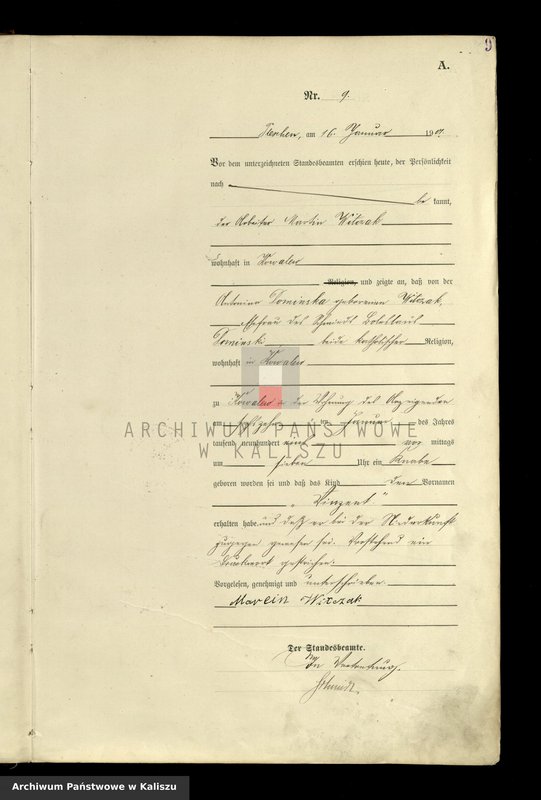 9
A.
Nr. 9.
am 16. Januar 1901.
Vor dem unterzeichneten Standesbeamten erschien heute, der Persönlichkeit
nach
be kannt,
der Arbeiter Martin Wilczak
wohnhaft in Kowalew
Religion, und zeigte an, daß von der
Antonina Dominska geborenen Wilczak,
Ehefrau des Schmieds
Dominski, beide katholischer Religion,
wohnhaft in Kowalew
zu Kowalew in der Wohnung des Anzeigenden
am Januar des Jahres
tausend neunhundert eins vor mittags
um sieben Uhr ein Knabe
geboren worden sei und daß das Kind den Vornamen
„Vinzent"
erhalten habe und daß er bei der Niederkunft
zugegen gewesen sei. Vorstehend ein
Druckwort gestrichen.
Vorgelesen, genehmigt und unterschrieben.
Marcin Wilczak
Der Standesbeamte.
In Vertretung.
Schmidt.
ARCHIWUM PAŃSTWOWE
W KALISZU
Archiwum Państwowe w Kaliszu